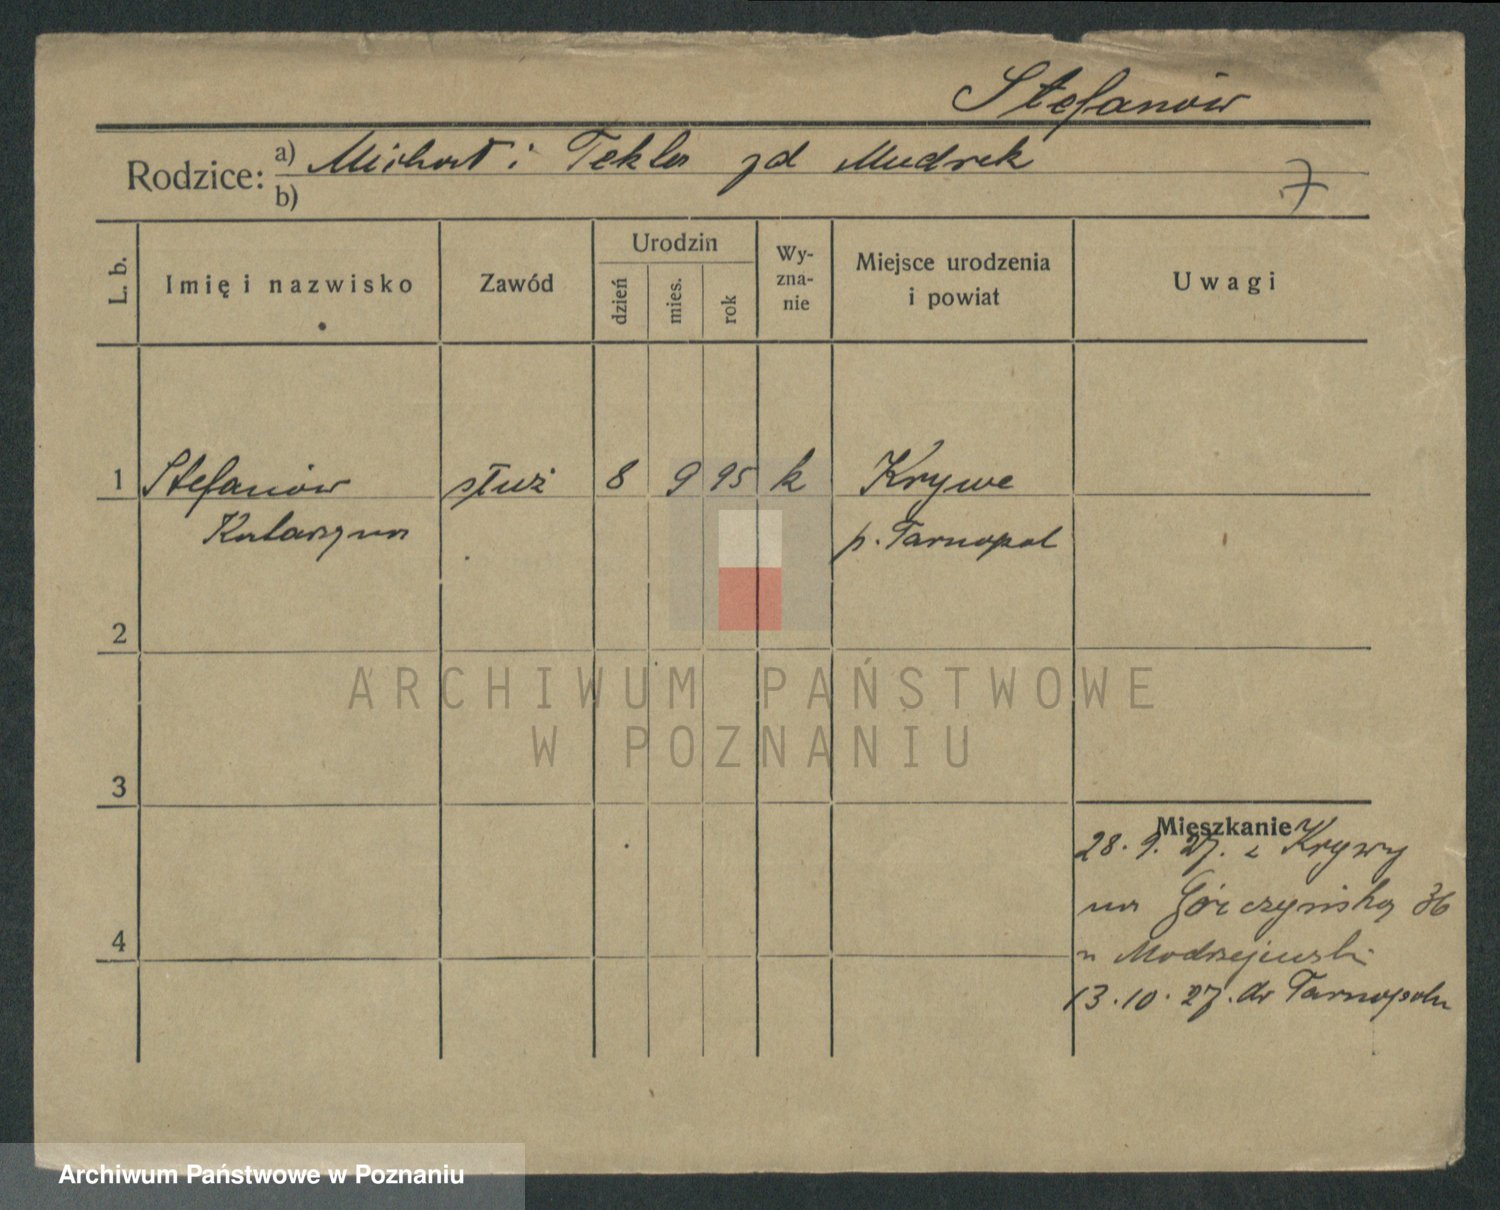 Stefanów
Rodzice: a) Michał i Tekla zd Mudrek
b)
L. b.
Imię i nazwisko
Zawód
Urodzin
dzień
mies.
rok
Wy-
zna-
nie
Miejsce urodzenia
i powiat
Uwagi
1 Stefanów służ 8 9 95 k Krywe
Katarzyna p. Tarnopol
2
3
4
Mieszkanie
28. 9. 27. z Krywy
na Górczyńską 36
u Modrzejewski
13. 10. 27. do Tarnopolu
ARCHIWUM PAŃSTWOWE
W POZNANIU
Archiwum Państwowe w Poznaniu